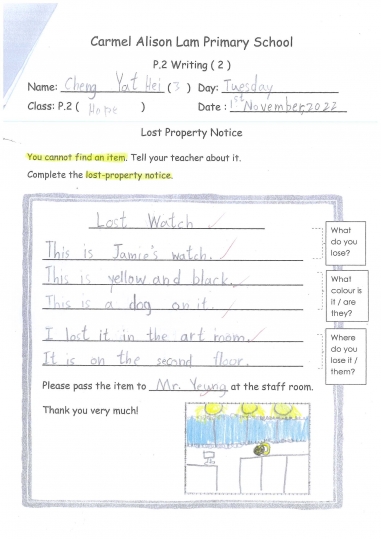 Carmel Alison Lam Primary School
P.2 Writing ( 2 )
Name: Cheng Yat Hei ( 3 ) Day: Tuesday
Class: P.2 ( Hope ) Date : 1st November,2022
Lost Property Notice
You cannot find an item. Tell your teacher about it.
Complete the lost-property notice.
Lost Watch
This is Jamie's watch.
What do you lose?
This is yellow and black.
This is a dog on it.
What colour is it / are they?
I lost it in the art room.
It is on the second floor.
Where do you lose it / them?
Please pass the item to Mr. Yeung at the staff room.
Thank you very much!